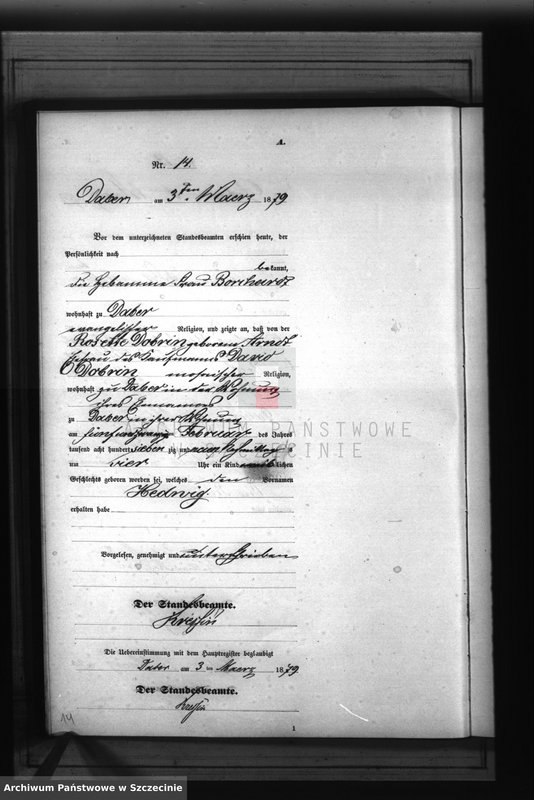 A.
Nr. 14.
Daber am 3ten Maerz 1879
Vor dem unterzeichneten Standesbeamten erschien heute, der
Persönlichkeit nach
bekannt,
die Hebamme Frau Borchardt
wohnhaft zu Daber
evangelischer Religion, und zeigte an, daß von der
Rosette Dobrin geborene Arndt
Ehefrau des Kaufmanns David
Dobrin mosaischer Religion,
wohnhaft zu Daber in der Wohnung
ihres Ehemannes
zu Daber in ihrer Wohnung
am fünfundzwanzig Februar des Jahres
tausend acht hundert sieben zig und neun Nachmittags
um vier Uhr ein Kind weiblichen
Geschlechts geboren worden sei, welches den Vornamen
Hedwig
erhalten habe
Vorgelesen, genehmigt und unterschrieben
Der Standesbeamte.
Die Uebereinstimmung mit dem Hauptregister beglaubigt
Daber am 3 ten Maerz 1879
Der Standesbeamte.
1
14
ARCHIWUM PAŃSTWOWE
W SZCZECINIE
Archiwum Państwowe w Szczecinie